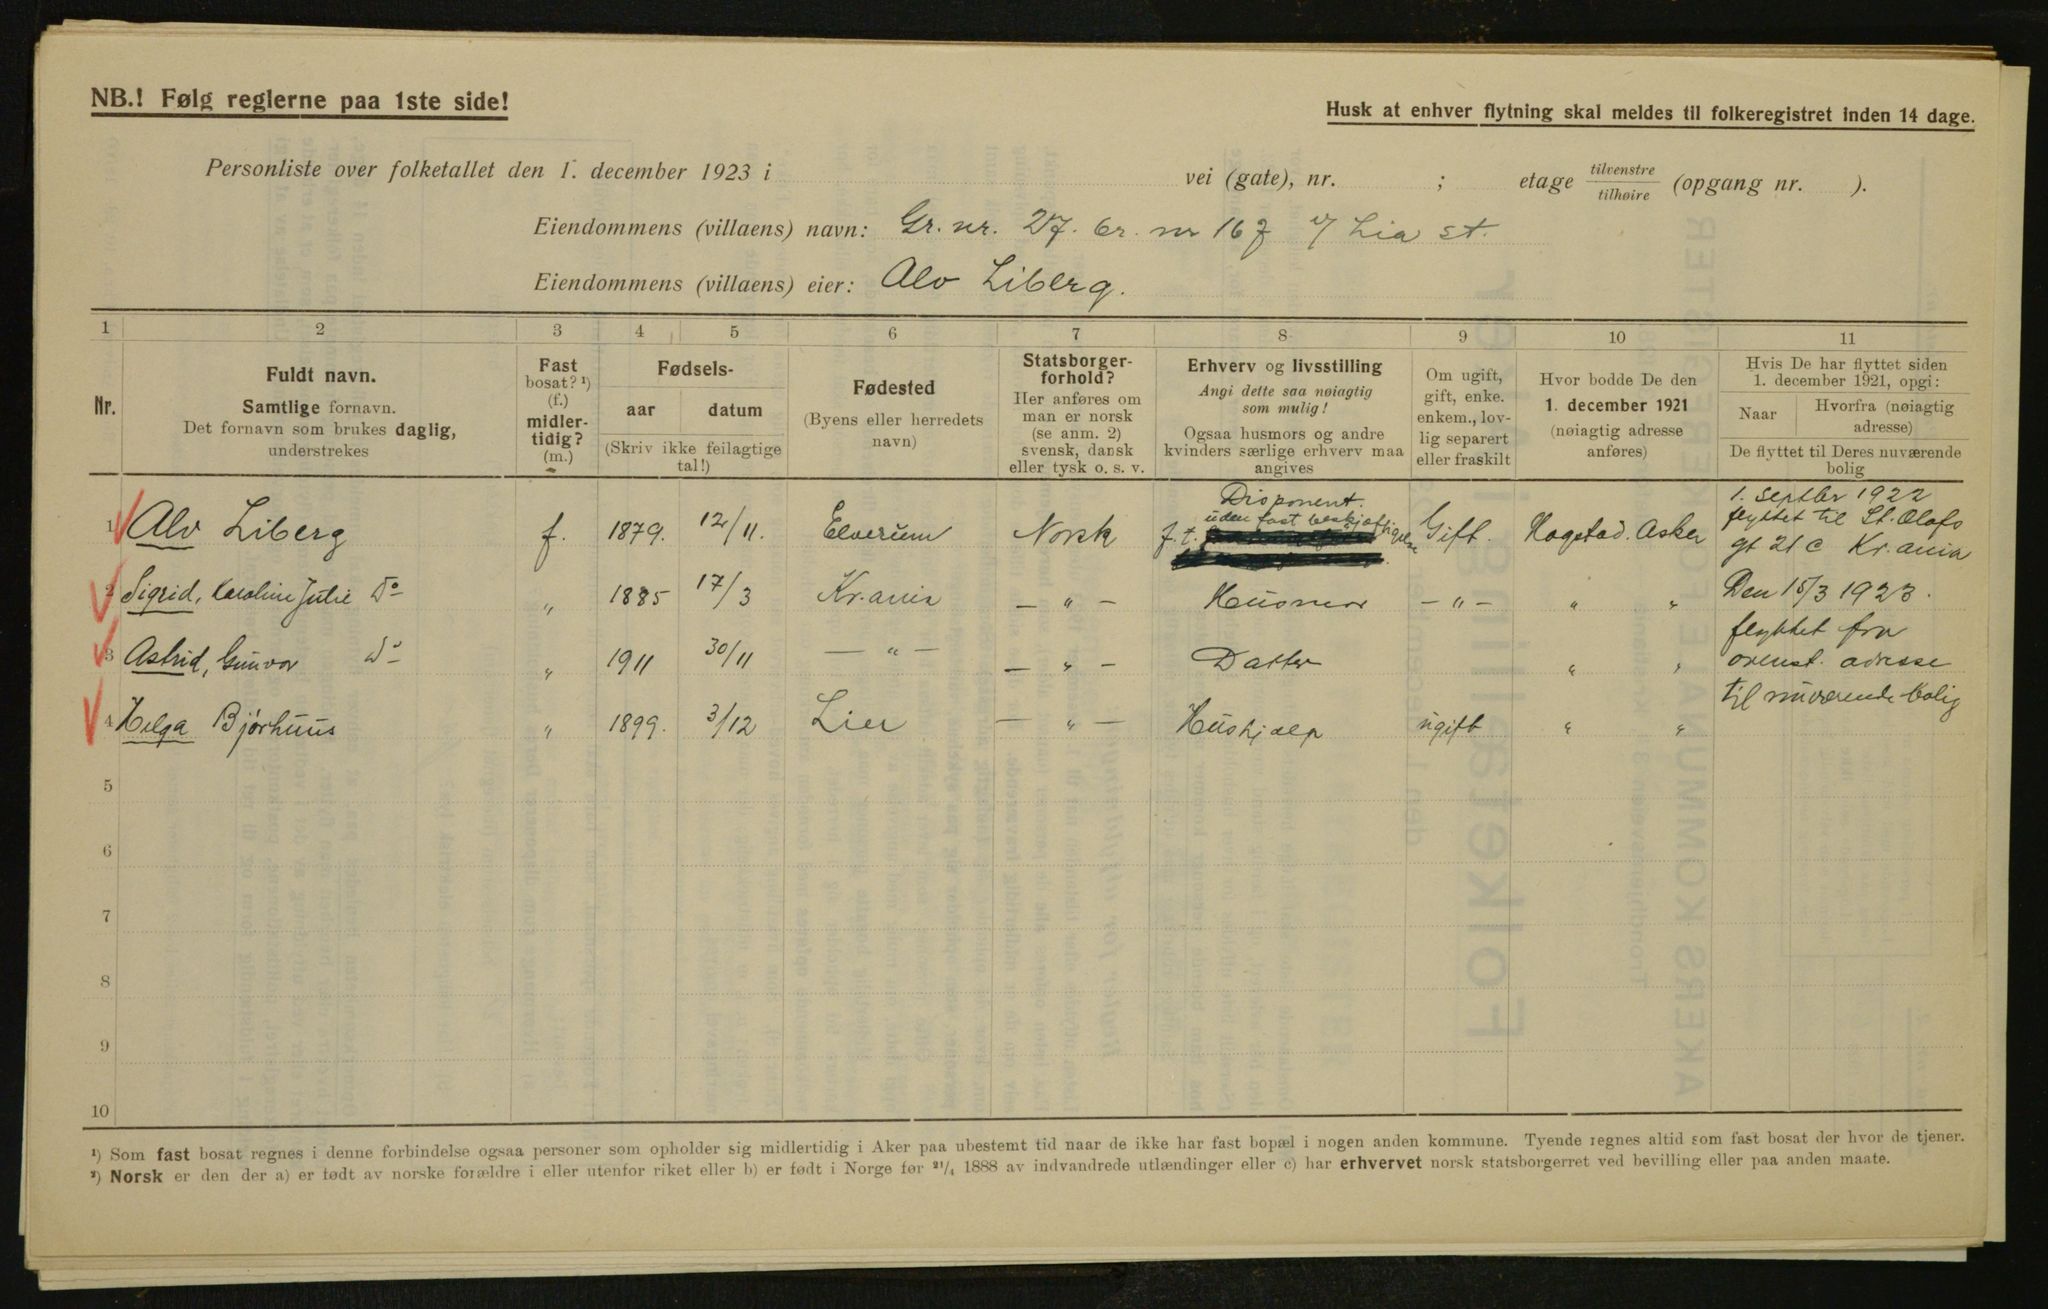 NB.! Følg reglerne paa 1ste side!
Husk at enhver flytning skal meldes til folkeregistret inden 14 dage.
Personliste over folketallet den 1. december 1923 i vei (gate), nr. ; etage tilvenstre/tilhøire (opgang nr. ).
Eiendommens (villaens) navn: Gr. nr. 27. br. nr 167 v/ Lia st.
Eiendommens (villaens) eier: Alv Liberg.
1 2 3 4 5 6 7 8 9 10 11
Nr.
Fuldt navn.
Samtlige fornavn.
Det fornavn som brukes daglig,
understrekes
Fast
bosat? ¹)
(f.)
midler-
tidig?
(m.)
Fødsels-
aar datum
(Skriv ikke feilagtige
tal!)
Fødested
(Byens eller herredets
navn)
Statsborger-
forhold?
Her anføres om
man er norsk
(se anm. 2)
svensk, dansk
eller tysk o. s. v.
Erhverv og livsstilling
Angi dette saa nøiagtig
som mulig!
Ogsaa husmors og andre
kvinders særlige erhverv maa
angives
Om ugift,
gift, enke.
enkem., lov-
lig separert
eller fraskilt
Hvor bodde De den
1. december 1921
(nøiagtig adresse
anføres)
Hvis De har flyttet siden
1. december 1921, opgi:
Naar Hvorfra (nøiagtig
adresse)
De flyttet til Deres nuværende
bolig
1 Alv Liberg f. 1879. 12/11. Elverum Norsk Disponent. f. t. uden fast beskjæftigelse Gift. Hogstad. Asker 1. septbr 1922
flyttet til St. Olafs
gt 21 c Kr.ania
2 Sigrid, Karoline Julie Do " 1885 17/3 Kr.ania — " — Husmor — " — " " Den 15/3 1923.
flyttet fra
3 Astrid, Gunvor Do " 1911 30/11 — " — — " — Datter " " ovenst. adresse
til nuværende bolig
4 Helga Bjørhuus " 1899. 3/12 Lier — " — Hushjælp ugift " "
5
6
7
8
9
10
¹) Som fast bosat regnes i denne forbindelse ogsaa personer som opholder sig midlertidig i Aker paa ubestemt tid naar de ikke har fast bopæl i nogen anden kommune. Tyende regnes altid som fast bosat der hvor de tjener.
²) Norsk er den der a) er født av norske forældre i eller utenfor riket eller b) er født i Norge før 21/4 1888 av indvandrede utlændinger eller c) har erhvervet norsk statsborgerret ved bevilling eller paa anden maate.